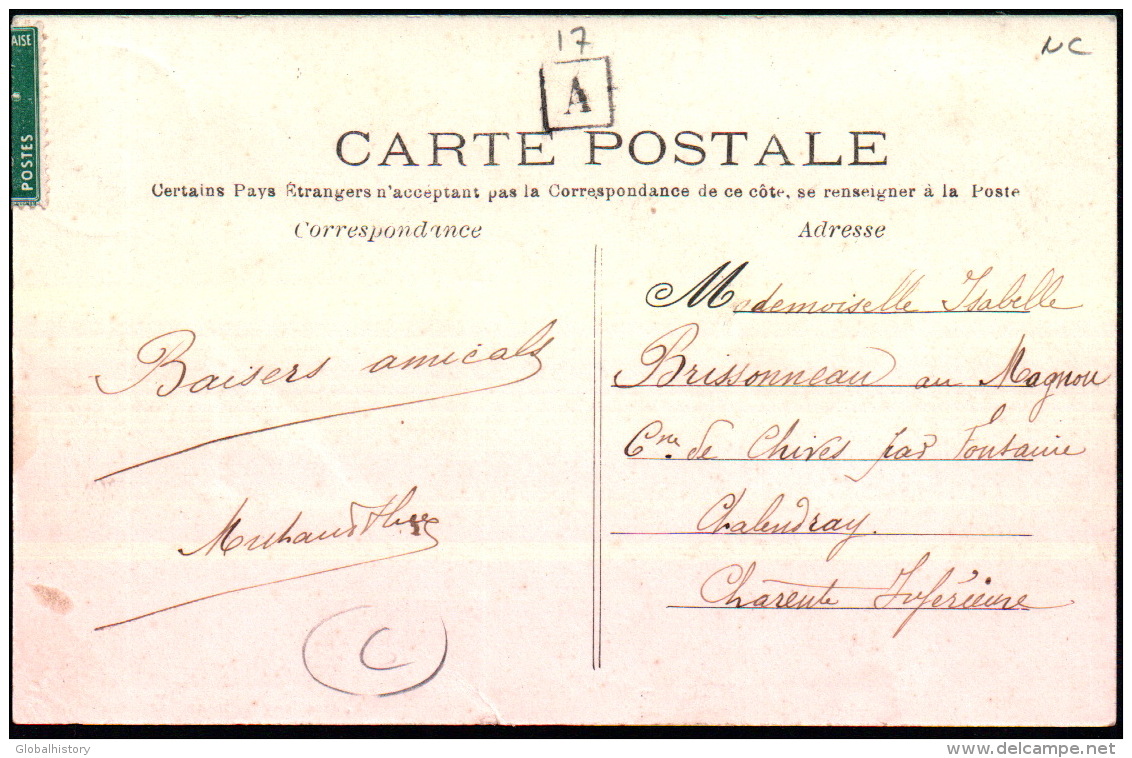 AISE
POSTES
17
NC
A
CARTE POSTALE
Certains Pays Étrangers n'acceptant pas la Correspondance de ce côte, se renseigner à la Poste
Correspondance
Baisers amicals
Adresse
Mademoiselle Isabelle
Brissonneau au Magnou
Cne de Chives par Fontaine
Chalendray.
Charente Inférieure
C
Globalhistory
www.delcampe.net